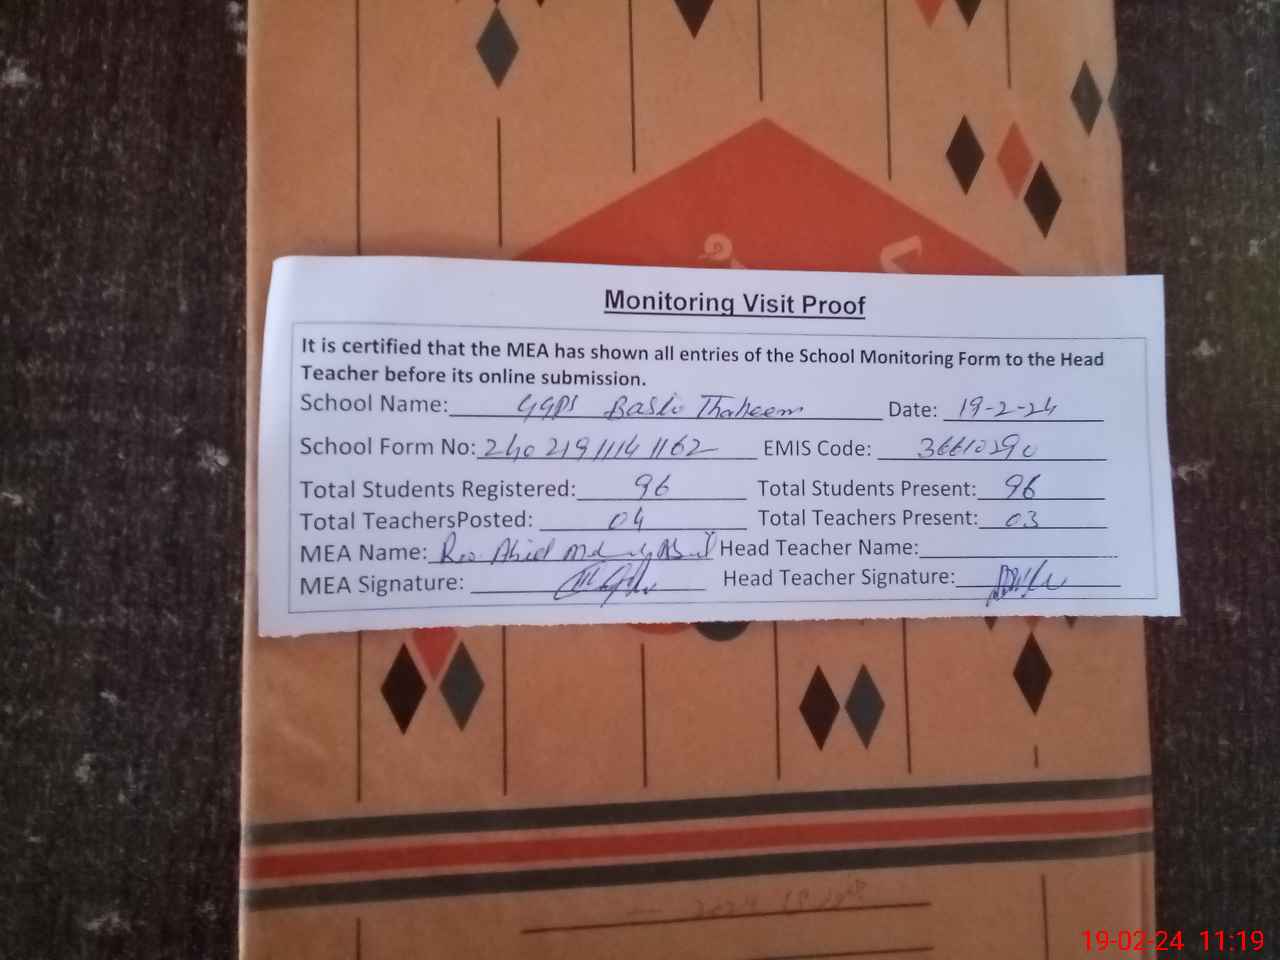 Monitoring Visit Proof
It is certified that the MEA has shown all entries of the School Monitoring Form to the Head
Teacher before its online submission.
School Name: GGPS Basti Thaheem Date: 19-2-24
School Form No: 24021911141162 EMIS Code: 36610290
Total Students Registered: 96 Total Students Present: 96
Total TeachersPosted: 04 Total Teachers Present: 03
MEA Name: Rao Abid Head Teacher Name:
MEA Signature: Head Teacher Signature:
19-02-24 11:19